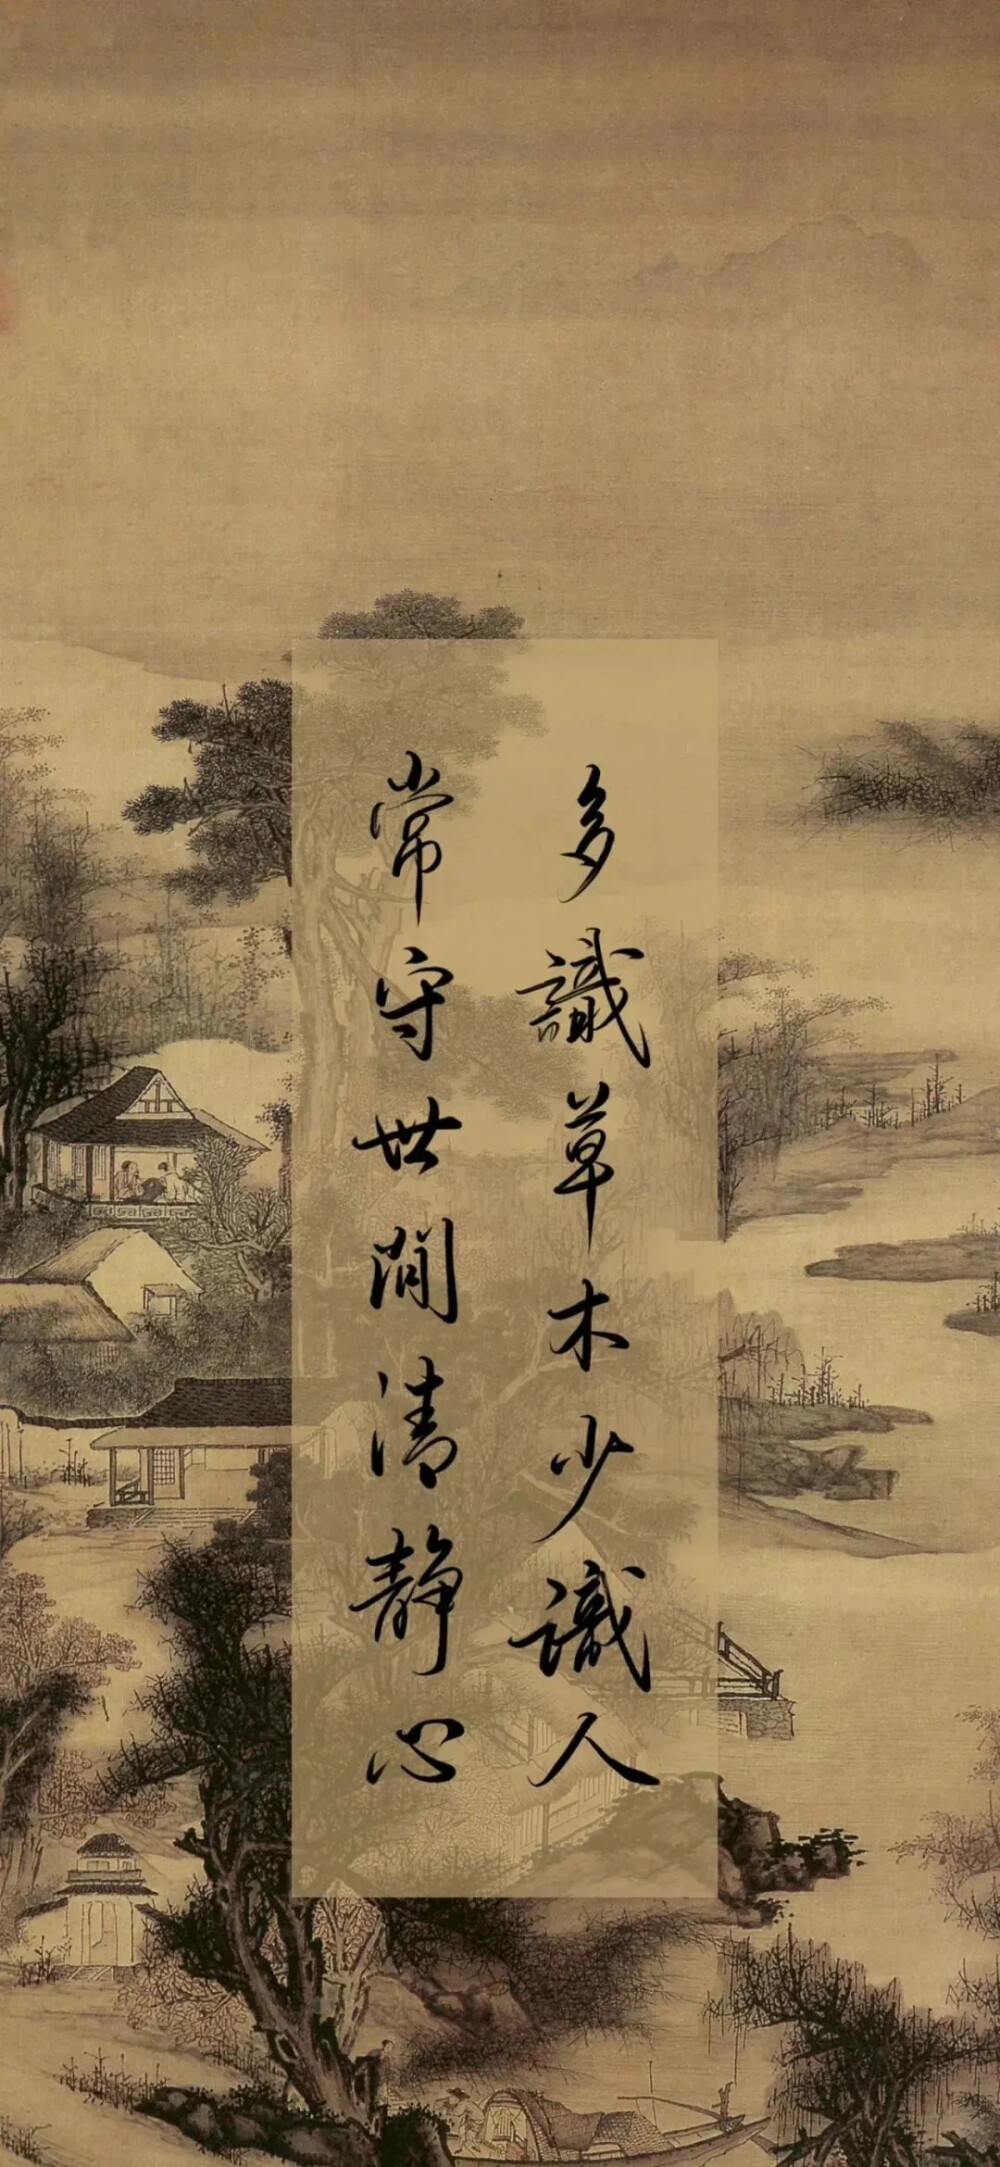 多識草木少識人
常守世間清静心